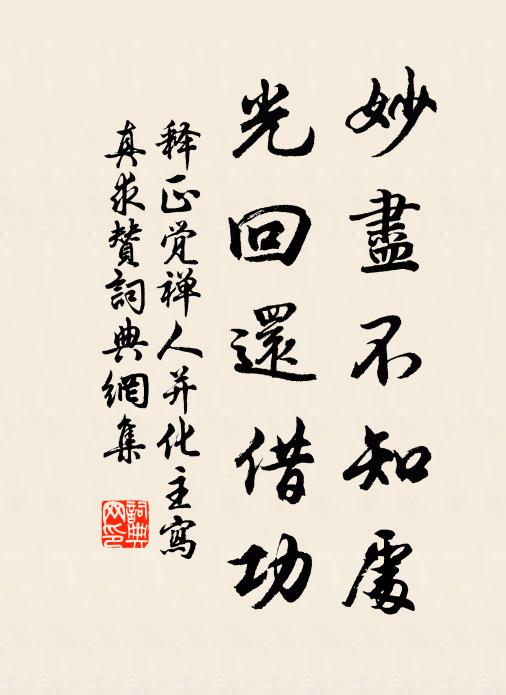 妙盡不知處
光回還借功
释正觉禅人并化主寫
真求贊詞典網集
詞典
网印